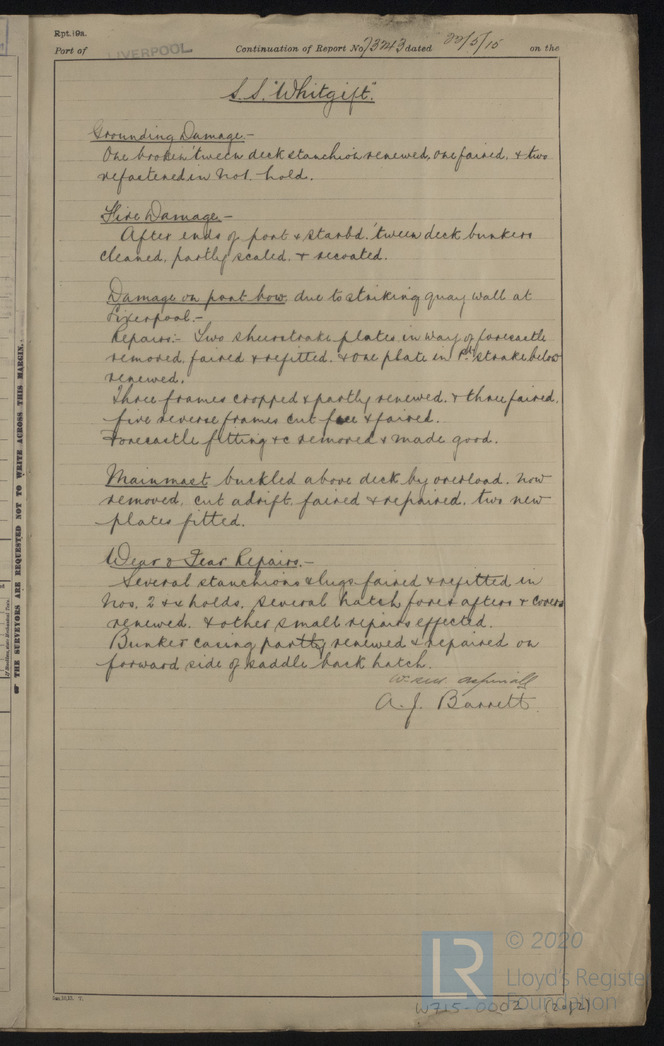 Rpt. 9a.
Port of LIVERPOOL Continuation of Report No 73243 dated 22/5/15 on the
S.S. "Whitgift".
Grounding Damage.—
One broken 'tween deck stanchion renewed, one faired, & two
refastened in No1. hold.
Fire Damage.—
After ends of port & starbd. 'tween deck bunkers
cleaned, partly scaled, & recoated.
Damage on port bow due to striking quay wall at
Liverpool.—
Repairs:- Two sheerstrake plates in way of forecastle
removed, faired & refitted. & one plate in strake below
renewed.
Three frames cropped & partly renewed. & three faired.
five reverse frames cut free & faired.
Forecastle fitting &c removed & made good.
Mainmast buckled above deck by overload. now
removed, cut adrift, faired & repaired. two new
plates fitted.
Wear & Tear Repairs.—
Several stanchions & lugs faired & refitted in
Nos. 2 & 4 holds. Several hatch fores afters & covers
renewed. & other small repairs effected.
Bunker casing partly renewed & repaired on
forward side of saddle back hatch.
Aspinall
A. J. Barrett.
OF THE SURVEYORS ARE REQUESTED NOT TO WRITE ACROSS THIS MARGIN.
LR
© 2020
Lloyd's Register
Foundation
W715-0002 (2of2)